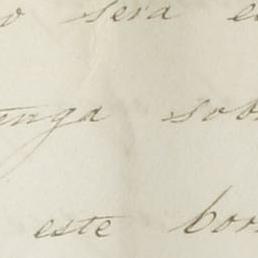 o será e
enga sob
este bor